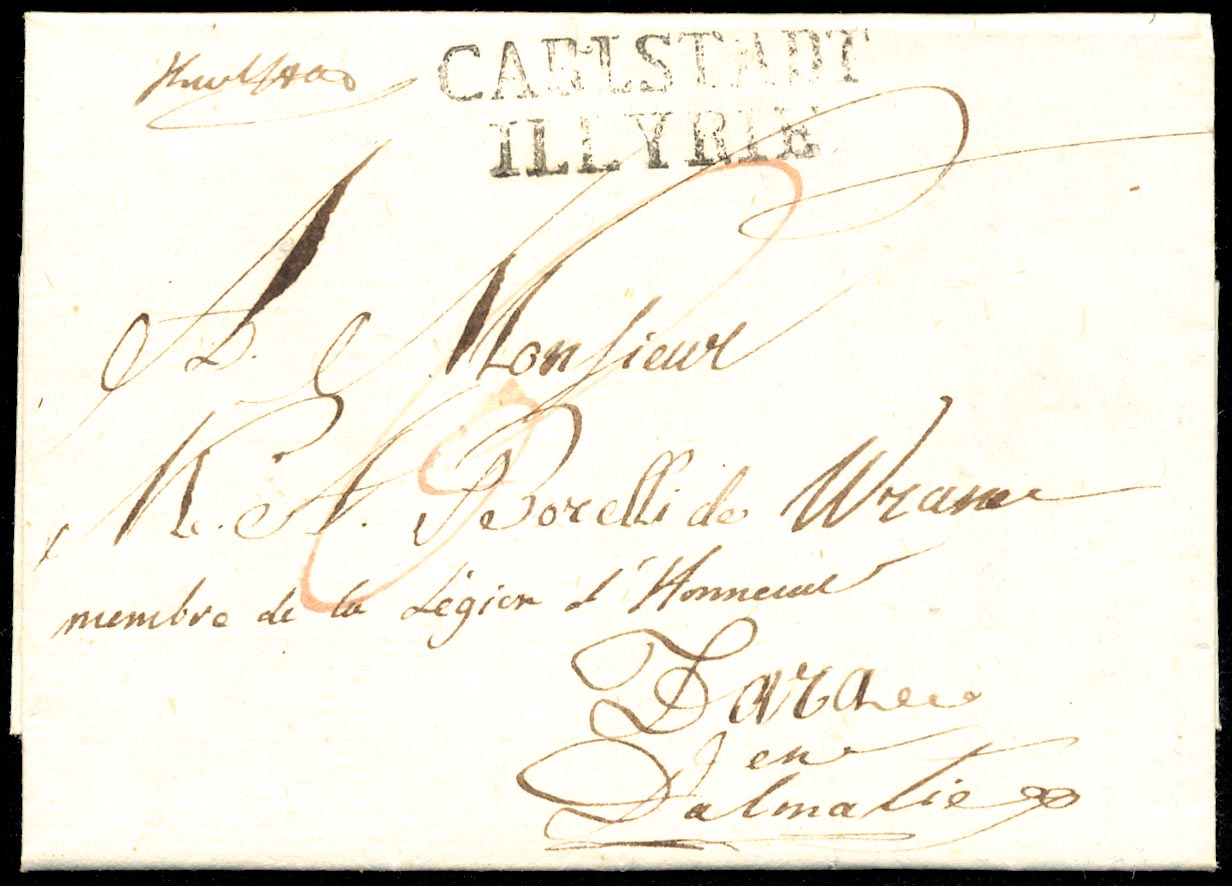 CARLSTADT
ILLYRIE
A. Monsieur
K. A. Borelli de Wrane
membre de la Légion d'Honneur
Zara
en
Dalmatie